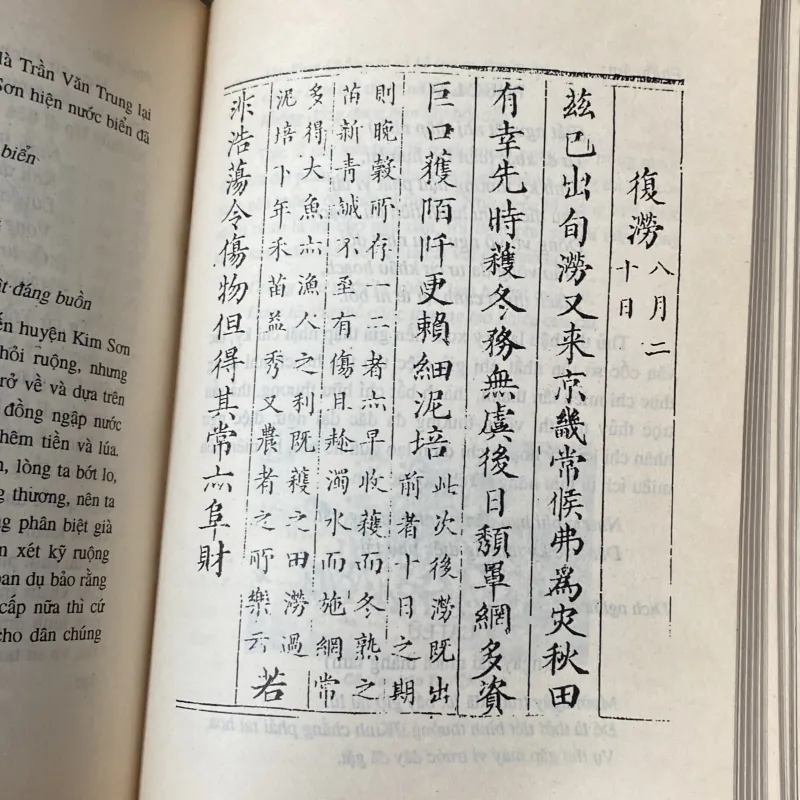 là Trần Văn Trung lại
Sơn hiện nước biển đã
biển.
đáng buồn
huyện Kim Sơn
hỏi ruộng, nhưng
về và dựa trên
đồng ngập nước
tiền và lúa.
lòng ta bớt lo,
thương, nên ta
phân biệt già
xét kỹ ruộng
ban dụ bảo rằng
cấp nữa thì cứ
cho dân chúng
復澇 八月二
十日
茲已出旬澇又来京畿常候弗爲灾秋田
有幸先時穫冬務無虞後日頹罩網多資
巨口獲陌阡更賴細泥培 此次後澇既出
前者十日之期
則晚穀所存一二者亦早收穫而冬熟之
苗新青誠不至有傷且趁濁水而施網常
多得大魚亦漁人之利既穫之田澇過
泥培下年禾苗益秀又農者之所樂云 若
非浩蕩令傷物但得其常亦阜財